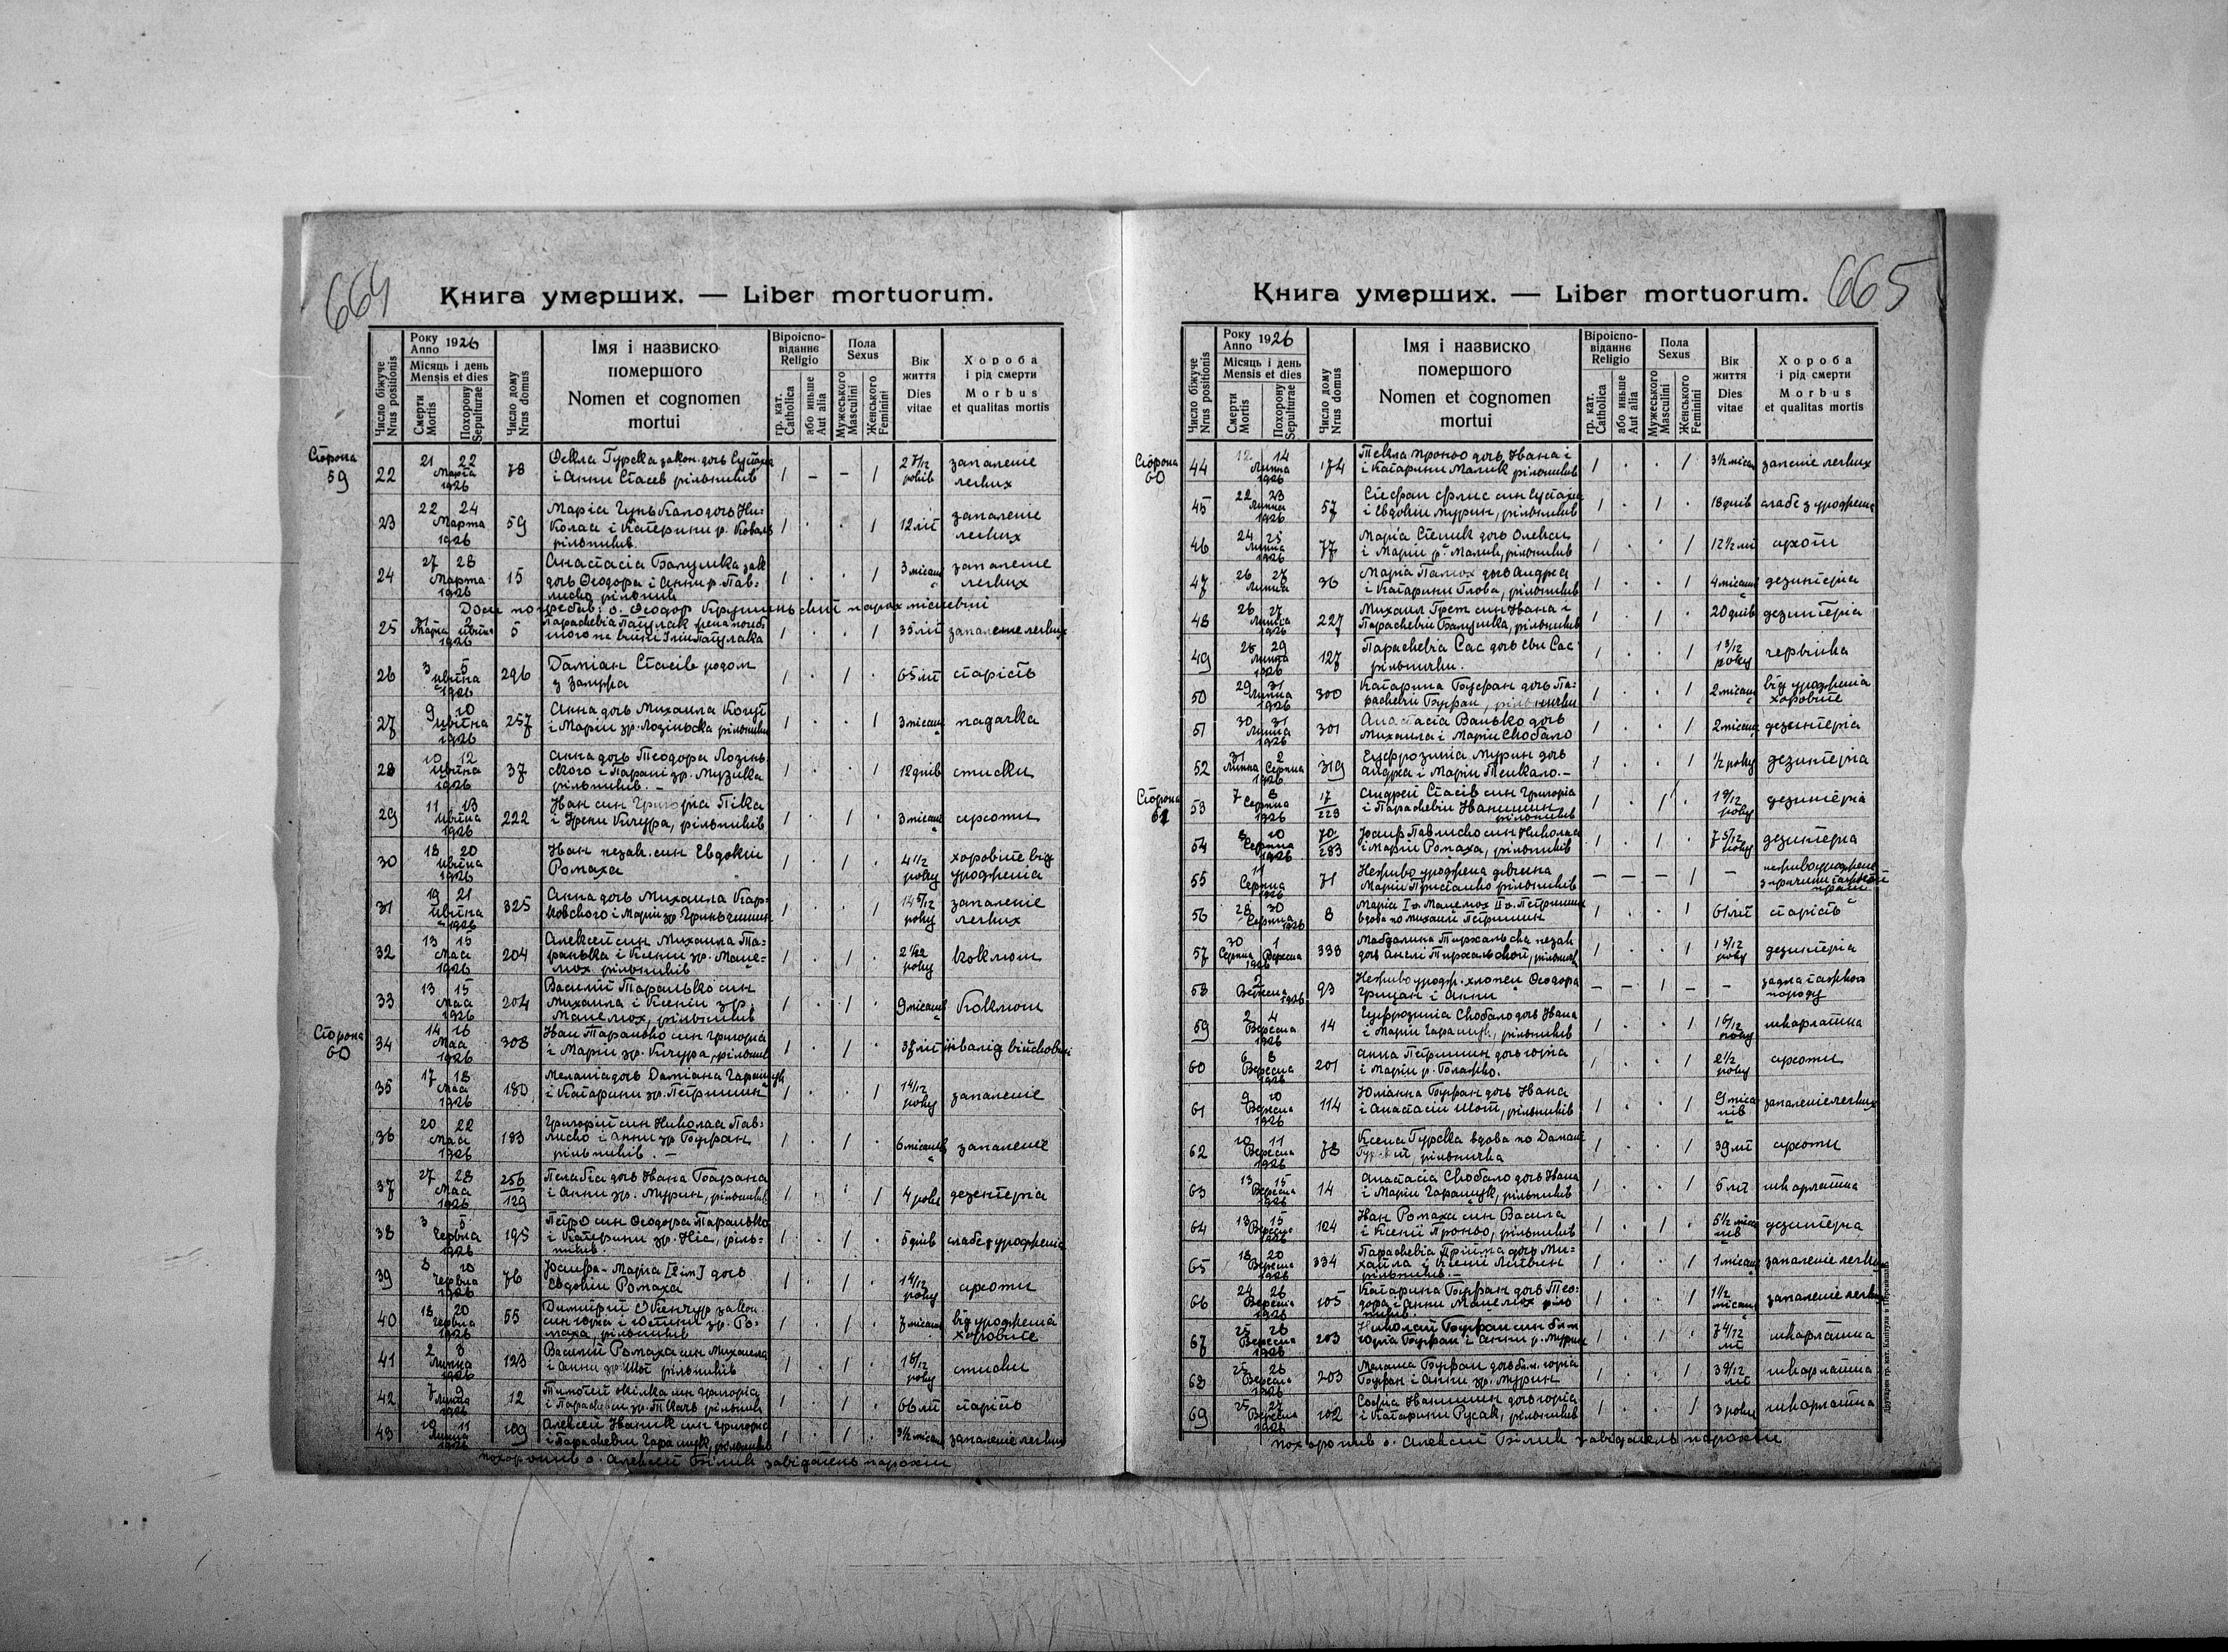 664
Книга умерших. — Liber mortuorum.
Число біжуче Nrus positionis
Року Anno 1926
Місяць і день Mensis et dies
Смерти Mortis
Похорону Sepulturae
Число дому Nrus domus
Імя і назвиско помершого
Nomen et cognomen mortui
Віроіспо-відання Religio
гр. кат. Catholica
або иньше Aut alia
Пола Sexus
Мужеського Masculini
Женського Feminini
Вік життя Dies vitae
Хороба і рід смерти
Morbus et qualitas mortis
Сторона 59
22 21 22 Марта 1926 78 Текла Гурска закон. дочь Євстахія
і Анни Стасів рільників 1 - - 1 2 7/12 років запаленє легких
23 22 24 Марта 1926 59 Марія дочь Ни-
колая і Катерини р. Коваль
рільників. 1 . . 1 12 літ запаленє легких
24 27 28 Марта 1926 15 Анастасія Балушка зак
дочь Теодора і Анни р. Пав-
лиско рільник 1 . . 1 3 місяці запаленє легких
Доси погребав: о. Теодор парох місцевий
25 31 Марта 2 цвітня 1926 5 Параскевія Пацулак
на війні Пацулака 1 . . 1 35 літ запаленє легких
26 3 5 цвітня 1926 296 Даміан Стасів родом
з 1 . 1 . 65 літ старість
27 9 10 цвітня 1926 257 Анна дочь Михаила Когут
і Марії зр. Лозіньска рільники 1 . . 1 3 місяці падачка
28 10 12 цвітня 1926 37 Анна дочь Теодора Лозінь-
ского і Парані зр. Музичка
рільників. — 1 . . 1 12 днів
29 11 13 цвітня 1926 222 Іван син Григорія Піка
і Ірени Кічура, рільників 1 . 1 . 3 місяці сухоти
30 18 20 цвітня 1926 Іван незак. син Евдокії
Ромаха 1 . 1 . 4 1/2 року хоровите від уродженя
31 19 21 цвітня 1926 325 Анна дочь Михаила Кар-
ковского і Марії зр. 1 . . 1 14 5/12 року запаленє легких
32 13 15 Мая 1926 204 Алексей син Михаила Та-
ранька і Ксенії зр. Мане-
люх рільників 1 . 1 . року коклюш
33 13 15 Мая 1926 204 Василий Таранько син
Михаила і Ксенії зр.
Манелюх, рільників 1 . 1 . 9 місяців коклюш
Сторона 60
34 14 16 Мая 1926 308 Іван Таранько син Григорія
і Марії зр. Кічура, рільник 1 . 1 . 37 літ інвалід військовий
35 17 18 Мая 1926 180 Меланія дочь Даміана Гаращук
і Катарини зр. Петришин 1 . . 1 1 4/12 року запаленє
36 20 22 Мая 1926 183 Григорий син Николая Пав-
лиско і Анни зр Боурдан
рільників. — 1 . 1 . 6 місяців запаленє
37 27 28 Мая 1926 256/129 Пелагія дочь Івана Барана
і Анни зр. Мурин, рільників 1 . . 1 4 роки дезентерія
38 3 5 Червня 1926 195 Петро син Теодора Таранько
і Катерини зр. Ніс, ріль-
ників. 1 . 1 . 5 днів слабе з уродженя
39 8 10 Червня 1926 76 Йосифа-Марія дочь
Евдокії Ромаха 1 . 1 . 1 4/12 року сухоти
40 18 20 Червня 1926 55 Димитрій закон
син Юрка і Юстини зр. Ро-
маха, рільників 1 . 1 . 7 місяців від уродженя хоровите
41 2 3 Липня 1926 123 Василий Ромаха син Михаила
і Анни зр. Шот рільників 1 . 1 . 1 6/12 року
42 7 9 Липня 1926 12 Тимотей син Григорія
і Параскевії зр. Ткачь рільник 1 . 1 . 66 літ старість
43 10 11 Липня 1926 109 Алексей Іваник син Григорія
і Параскевії Гаращук, рільників 1 . 1 . 3 1/2 місяц запаленє легких
похоронив о. Алексій Білик завідатель парохії
665
Книга умерших. — Liber mortuorum.
Число біжуче Nrus positionis
Року Anno 1926
Місяць і день Mensis et dies
Смерти Mortis
Похорону Sepulturae
Число дому Nrus domus
Імя і назвиско помершого
Nomen et cognomen mortui
Віроіспо-відання Religio
гр. кат. Catholica
або иньше Aut alia
Пола Sexus
Мужеського Masculini
Женського Feminini
Вік життя Dies vitae
Хороба і рід смерти
Morbus et qualitas mortis
Сторона 60
44 12 14 Липня 1926 174 Текла Проньо дочь Івана і
і Катарини Малик рільників 1 . . 1 3 1/2 місяц запаленє легких
45 22 23 Липня 1926 57 Стефан син Євстахія
і Евдокії Мурин, рільників 1 . 1 . 18 днів слабе з уродженя
46 24 25 Липня 1926 77 Марія Стецик дочь Олекси
і Марії р. Малик, рільників 1 . . 1 12 1/2 літ сухоти
47 26 27 Липня 36 Марія дочь Андрея
і Катарини Глова, рільників 1 . . 1 4 місяці дезинтерія
48 26 27 Липня 1926 227 Михаил Грет син Івана і
Параскевії Балушка, рільників 1 . 1 . 20 днів дезинтерія
49 28 29 Липня 1926 127 Параскевія Сас дочь Еви Сас
рільнички. 1 . . 1 1 3/12 року червінка
50 29 31 Липня 1926 300 Катарина Боурдан дочь Па-
раскевії Боурдан, рільнички 1 . . 1 2 місяці від уродженя хоровите
51 30 31 Липня 1926 301 Анастасія Ванько дочь
Михаила і Марії Скобало 1 . . 1 2 місяці дезинтерія
52 31 Липня 2 Серпня 1926 319 Евфрозинія Мурин дочь
Андрея і Марії .— 1 . . 1 1/2 року дезинтерія
Сторона 61
53 7 8 Серпня 1926 17/223 Андрей Стасів син Григорія
і Параскевії Іванишин
рільників 1 . 1 . 1 9/12 року дезинтерія
54 8 10 Серпня 1926 70/283 Йосиф Павлиско син Николая
і Марії Ромаха, рільників 1 . 1 . 7 5/12 року дезинтерія
55 11 Серпня 1926 71 Неживо уроджена дівчина
Марії Пристанко рільників — — — 1 — неживоуроджене
56 28 30 Серпня 1926 8 Марія Iv. Манелюх IIv. Петришин
вдова по Михаилі Петришин 1 . . 1 61 літ старість
57 30 Серпня 1 Вересня 1926 338 Магдалина Пирхальска незак
дочь Анелі Пирхальской, рільнич 1 . . 1 1 5/12 року дезинтерія
58 2 Вересня 1926 93 Неживо уродж. хлопец Теодора
Грицан і Анни — — 1 — — задля тяжкого породу
59 2 4 Вересня 1926 14 Евфрозинія Скобало дочь Івана
і Марії Гаращук, рільників 1 . . 1 1 6/12 року шкарлатина
60 6 8 Вересня 1926 201 Анна Петришин дочь Юрія
і Марії р. Головко. 1 . . 1 2 1/2 року сухоти
61 9 10 Вересня 1926 114 Юлианна Боурдан дочь Івана
і Анастасії Шот, рільників 1 . . 1 9 місяців запаленє легких
62 10 11 Вересня 1926 78 Ксеня Гурска вдова по Даміані
рільничка 1 . . 1 39 літ сухоти
63 13 15 Вересня 1926 14 Анастасія Скобало дочь Івана
і Марії Гаращук, рільників 1 . . 1 5 літ шкарлатина
64 13 15 Вересня 1926 124 Іван Ромаха син Василя
і Ксенії Проньо, рільників 1 . 1 . 5 1/2 місяців дезинтерія
65 18 20 Вересня 1926 334 Параскевія Прийма дочь Ми-
хайла і Ксенії Литвин
рільників.— 1 . . 1 1 місяць запаленє легких
66 24 26 Вересня 1926 105 Катарина Боурдан дочь Тео-
дора і Анни Манелюх ріль
ників. 1 . . 1 1 1/2 місяця запаленє легких
67 25 26 Вересня 1926 203 Николай Боурдан син бл.п.
Юрія Боурдан і Анни р. Мурин 1 . 1 . 7 4/12 літ шкарлатина
68 25 26 Вересня 1926 203 Мелания Боурдан дочь бл.п. Юрія
Боурдан і Анни зр. Мурин 1 . . 1 3 9/12 літ шкарлатина
69 25 27 Вересня 1926 102 Софія Іванишин дочь Юрія
і Катарини Русак, рільників 1 . . 1 3 роки шкарлатина
похоронив о. Алексій Білик завідатель парохії
Друкарня гр. кат. Капітули в Перемишлі